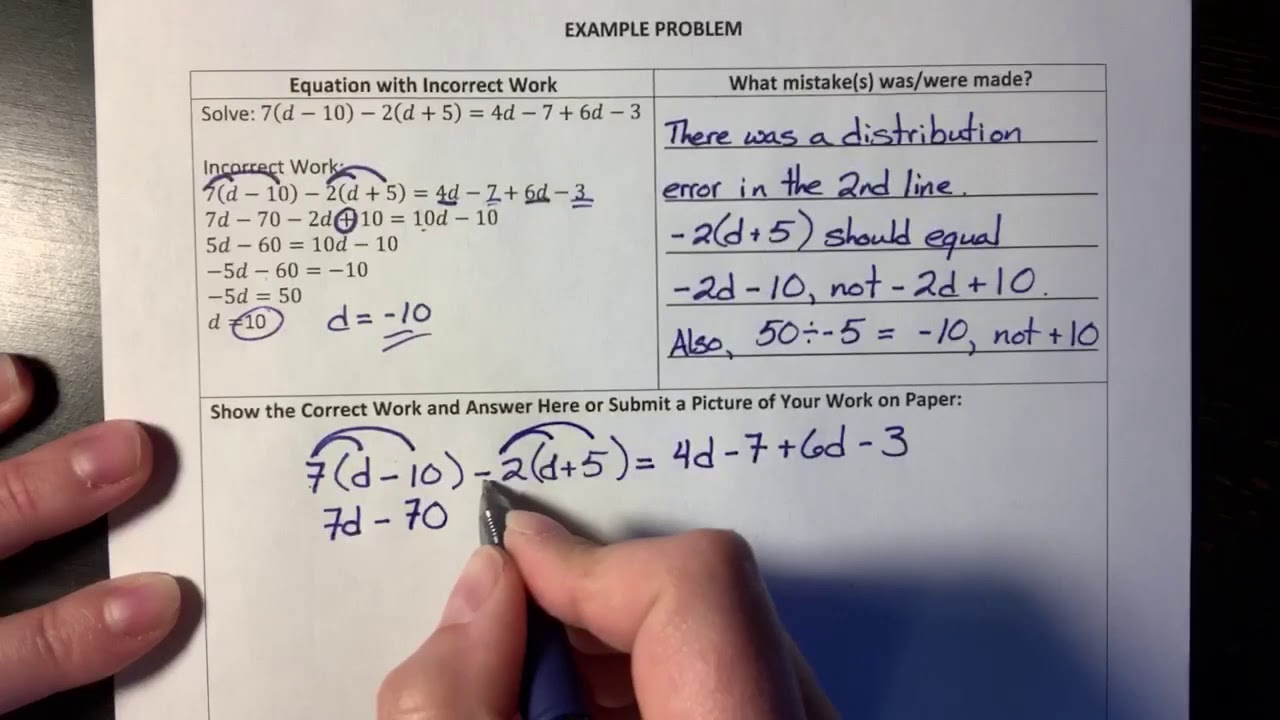 EXAMPLE PROBLEM
Equation with Incorrect Work
What mistake(s) was/were made?
Solve: 7(d − 10) − 2(d + 5) = 4d − 7 + 6d − 3
Incorrect Work:
7(d − 10) − 2(d + 5) = 4d − 7 + 6d − 3
7d − 70 − 2d + 10 = 10d − 10
5d − 60 = 10d − 10
−5d − 60 = −10
−5d = 50
d = 10
d = -10
There was a distribution
error in the 2nd line.
-2(d+5) should equal
-2d-10, not -2d+10.
Also, 50÷-5 = -10, not +10
Show the Correct Work and Answer Here or Submit a Picture of Your Work on Paper:
7(d-10)-2(d+5)= 4d-7+6d-3
7d-70